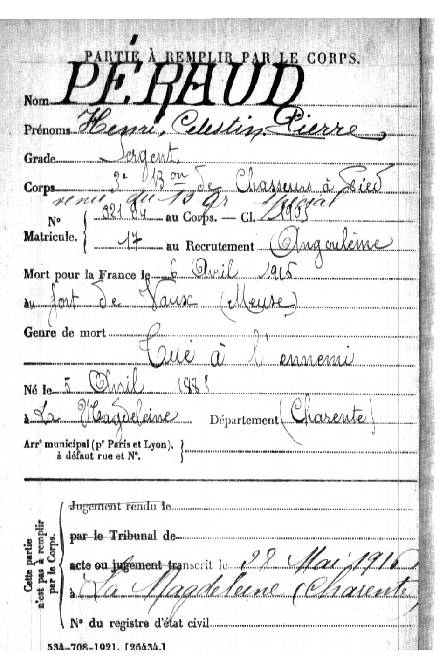 PARTIE À REMPLIR PAR LE CORPS.
Nom PÉRAUD
Prénoms Henri, Celestin Pierre
Grade Sergent
Corps 3e Bon de Chasseurs à Pied
venu du
N° au Corps. — Cl.
Matricule. 17 au Recrutement Angoulême
Mort pour la France le 6 Avril 1916
au fort de Vaux (Meuse)
Genre de mort
Tué à l'ennemi
Né le 5 Avril
à La Magdeleine Département (Charente)
Arrt municipal (pr Paris et Lyon),
à défaut rue et N°.
Cette partie n'est pas à remplir par le Corps.
Jugement rendu le
par le Tribunal de
acte ou jugement transcrit le 22 Mai 1916
à La Magdeleine (Charente)
N° du registre d'état civil
534-708-1921. [26434.]